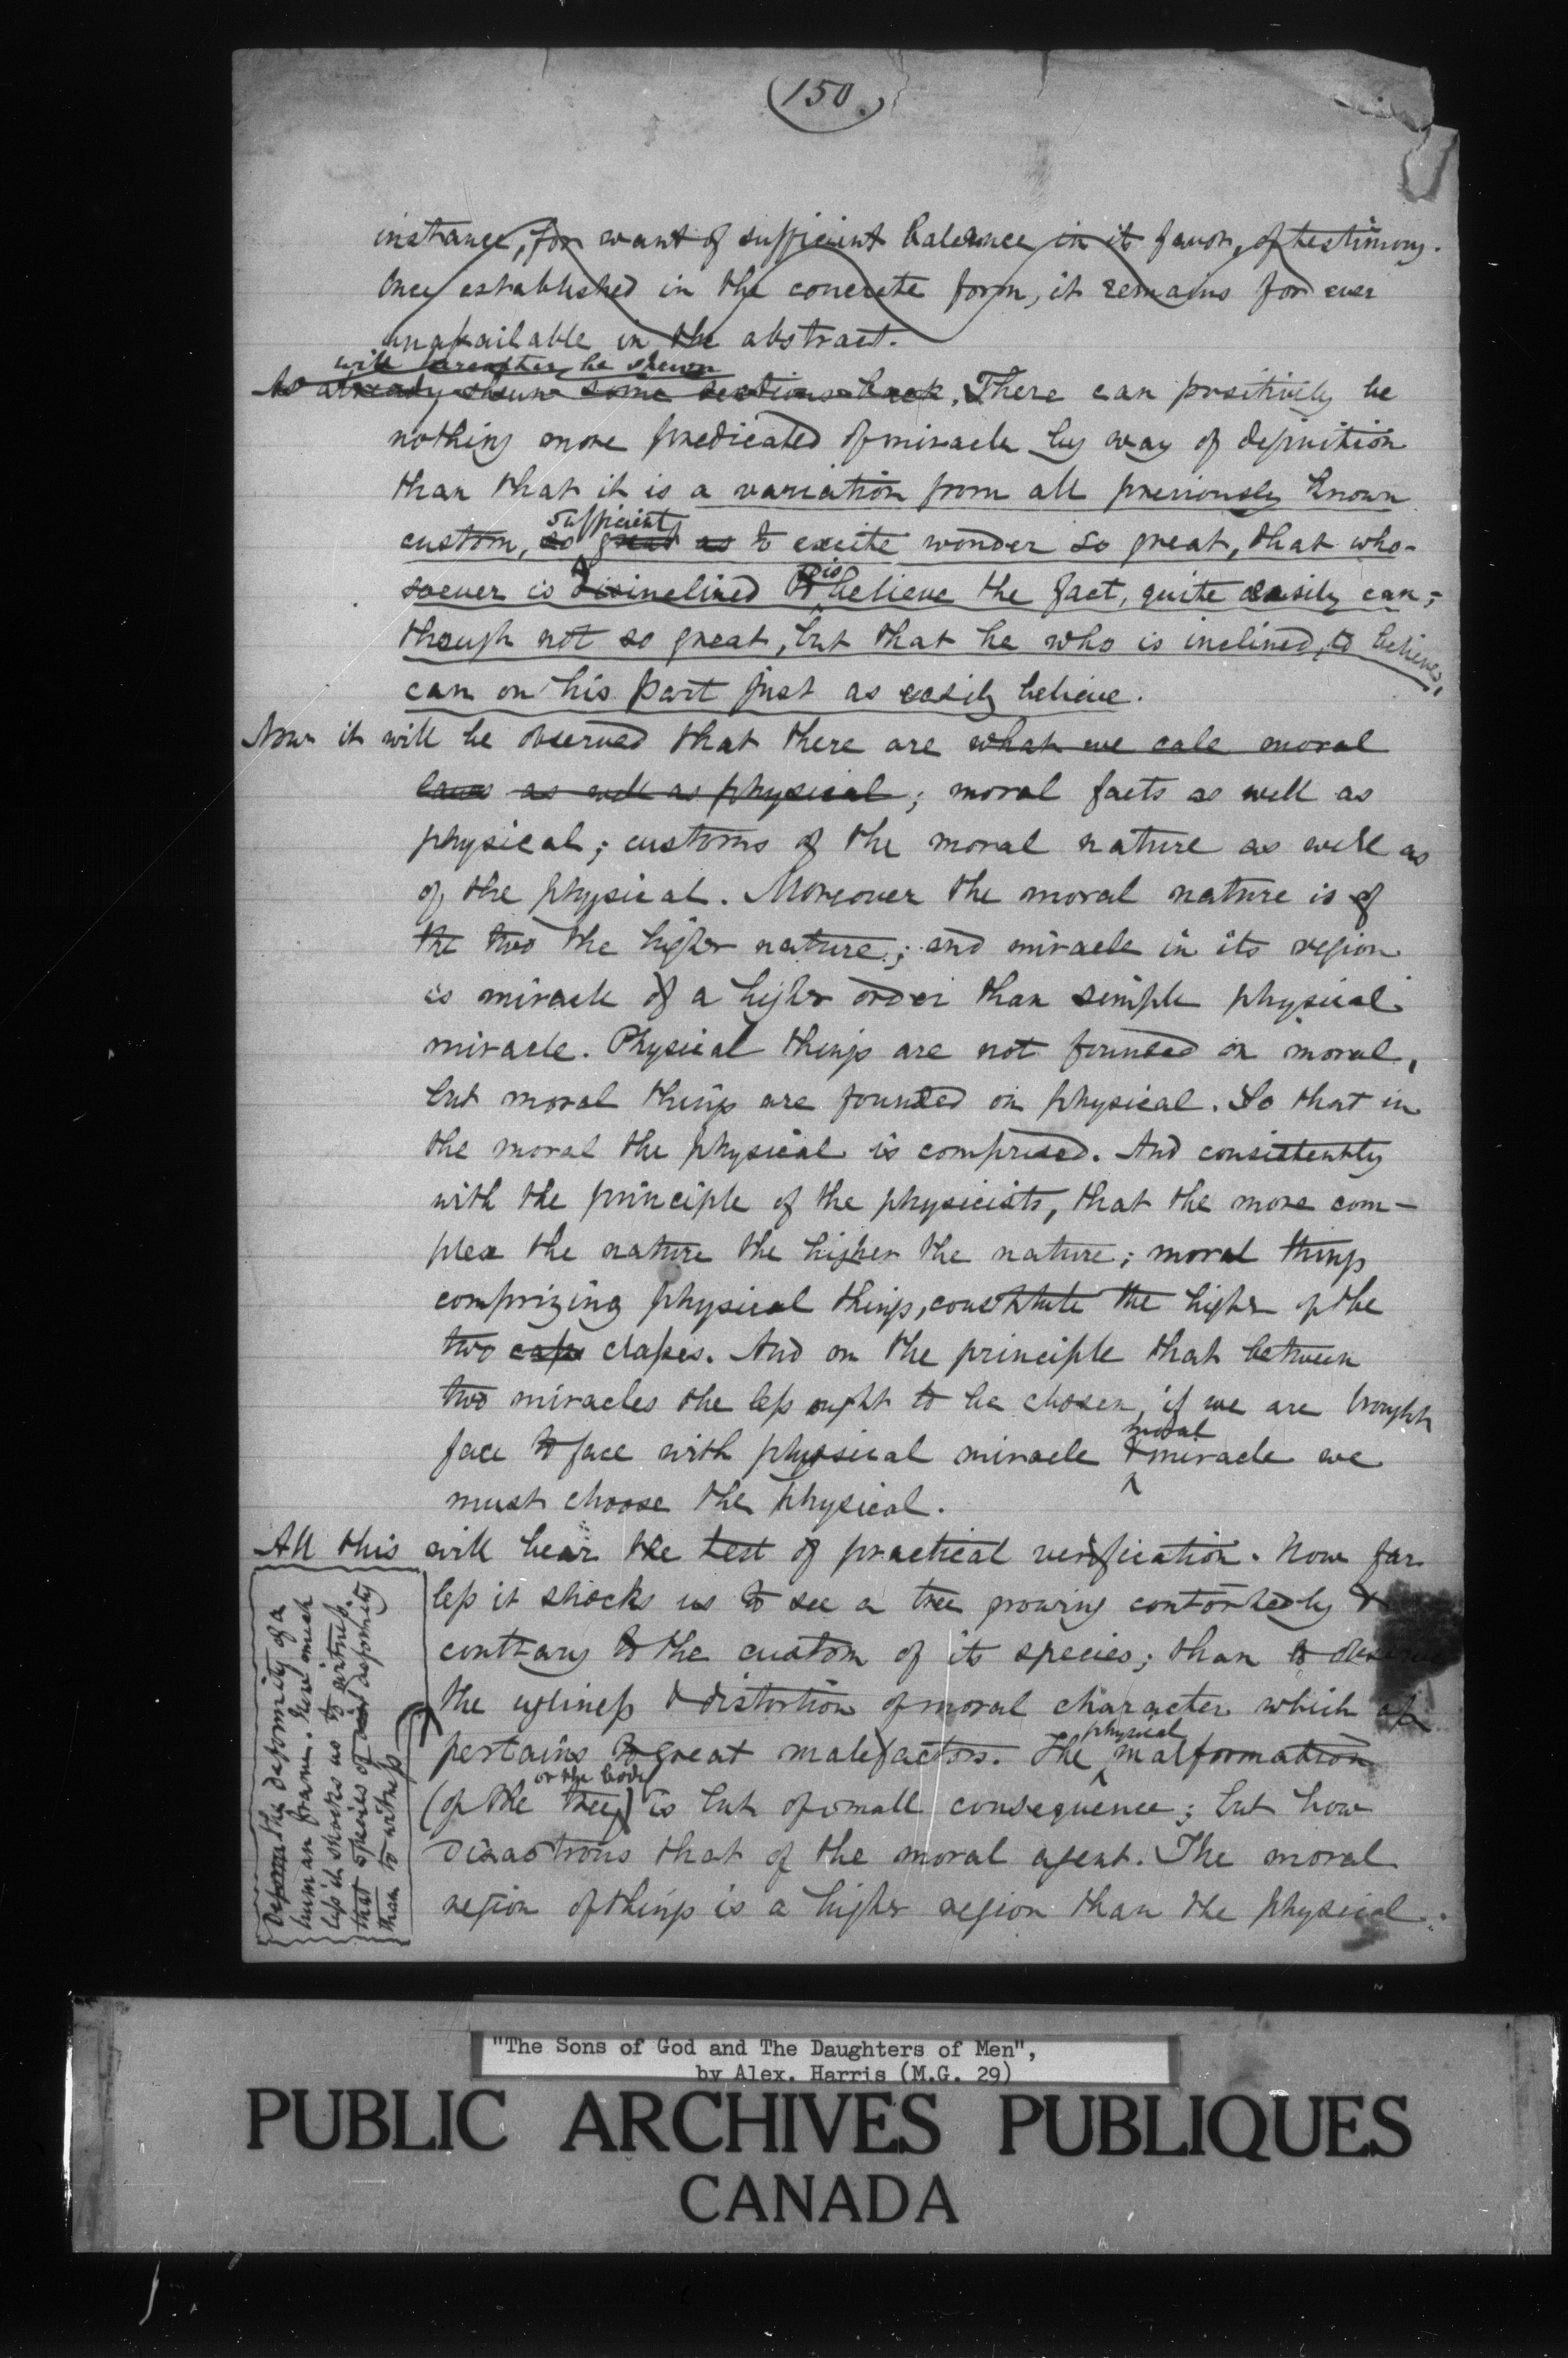 (150.)
instance, for want of sufficient balance in its favor, of testimony.
Once established in the concrete form, it remains for ever
unavailable in the abstract.
will hereafter be shewn
As already shewn some sections back. There can positively be
nothing more predicated of miracle by way of definition
than that it is a variation from all previously known
sufficient
custom, so great as to excite wonder so great, that who-
is
soever is disinclined to believe the fact, quite easily can;
though not so great, but that he who is inclined to believe,
can on his part just as easily believe.
Now it will be observed that there are what we cale moral
laws as well as physical; moral facts as well as
physical; customs of the moral nature as well as
of the physical. Moreover the moral nature is of
the two the higher nature; and miracle in its region
is miracle of a higher order than simple physical
miracle. Physical things are not founded on moral,
but moral things are founded on physical. So that in
the moral the physical is comprised. And consistently
with the principle of the physicists, that the more com-
plex the nature the higher the nature; moral things
comprizing physical things, constitute the higher of the
two classes. And on the principle that between
two miracles the less ought to be chosen, if we are brought
moral
face to face with physical miracle & miracle we
must choose the physical.
All this will bear the test of practical verification. How far
less it shocks us to see a tree growing contortedly &
contrary to the custom of its species; than to observe
the ugliness & distortion of moral character which ap
physical
pertains to great malefactors. The malformation
or the body
(of the tree) is but of small consequence; but how
disastrous that of the moral agent. The moral
region of things is a higher region than the physical.
the deformity of a
human frame. How much
less it shocks us to witness
that species of deformity
than to witness
"The Sons of God and The Daughters of Men",
by Alex. Harris (M.G. 29)
PUBLIC ARCHIVES PUBLIQUES
CANADA